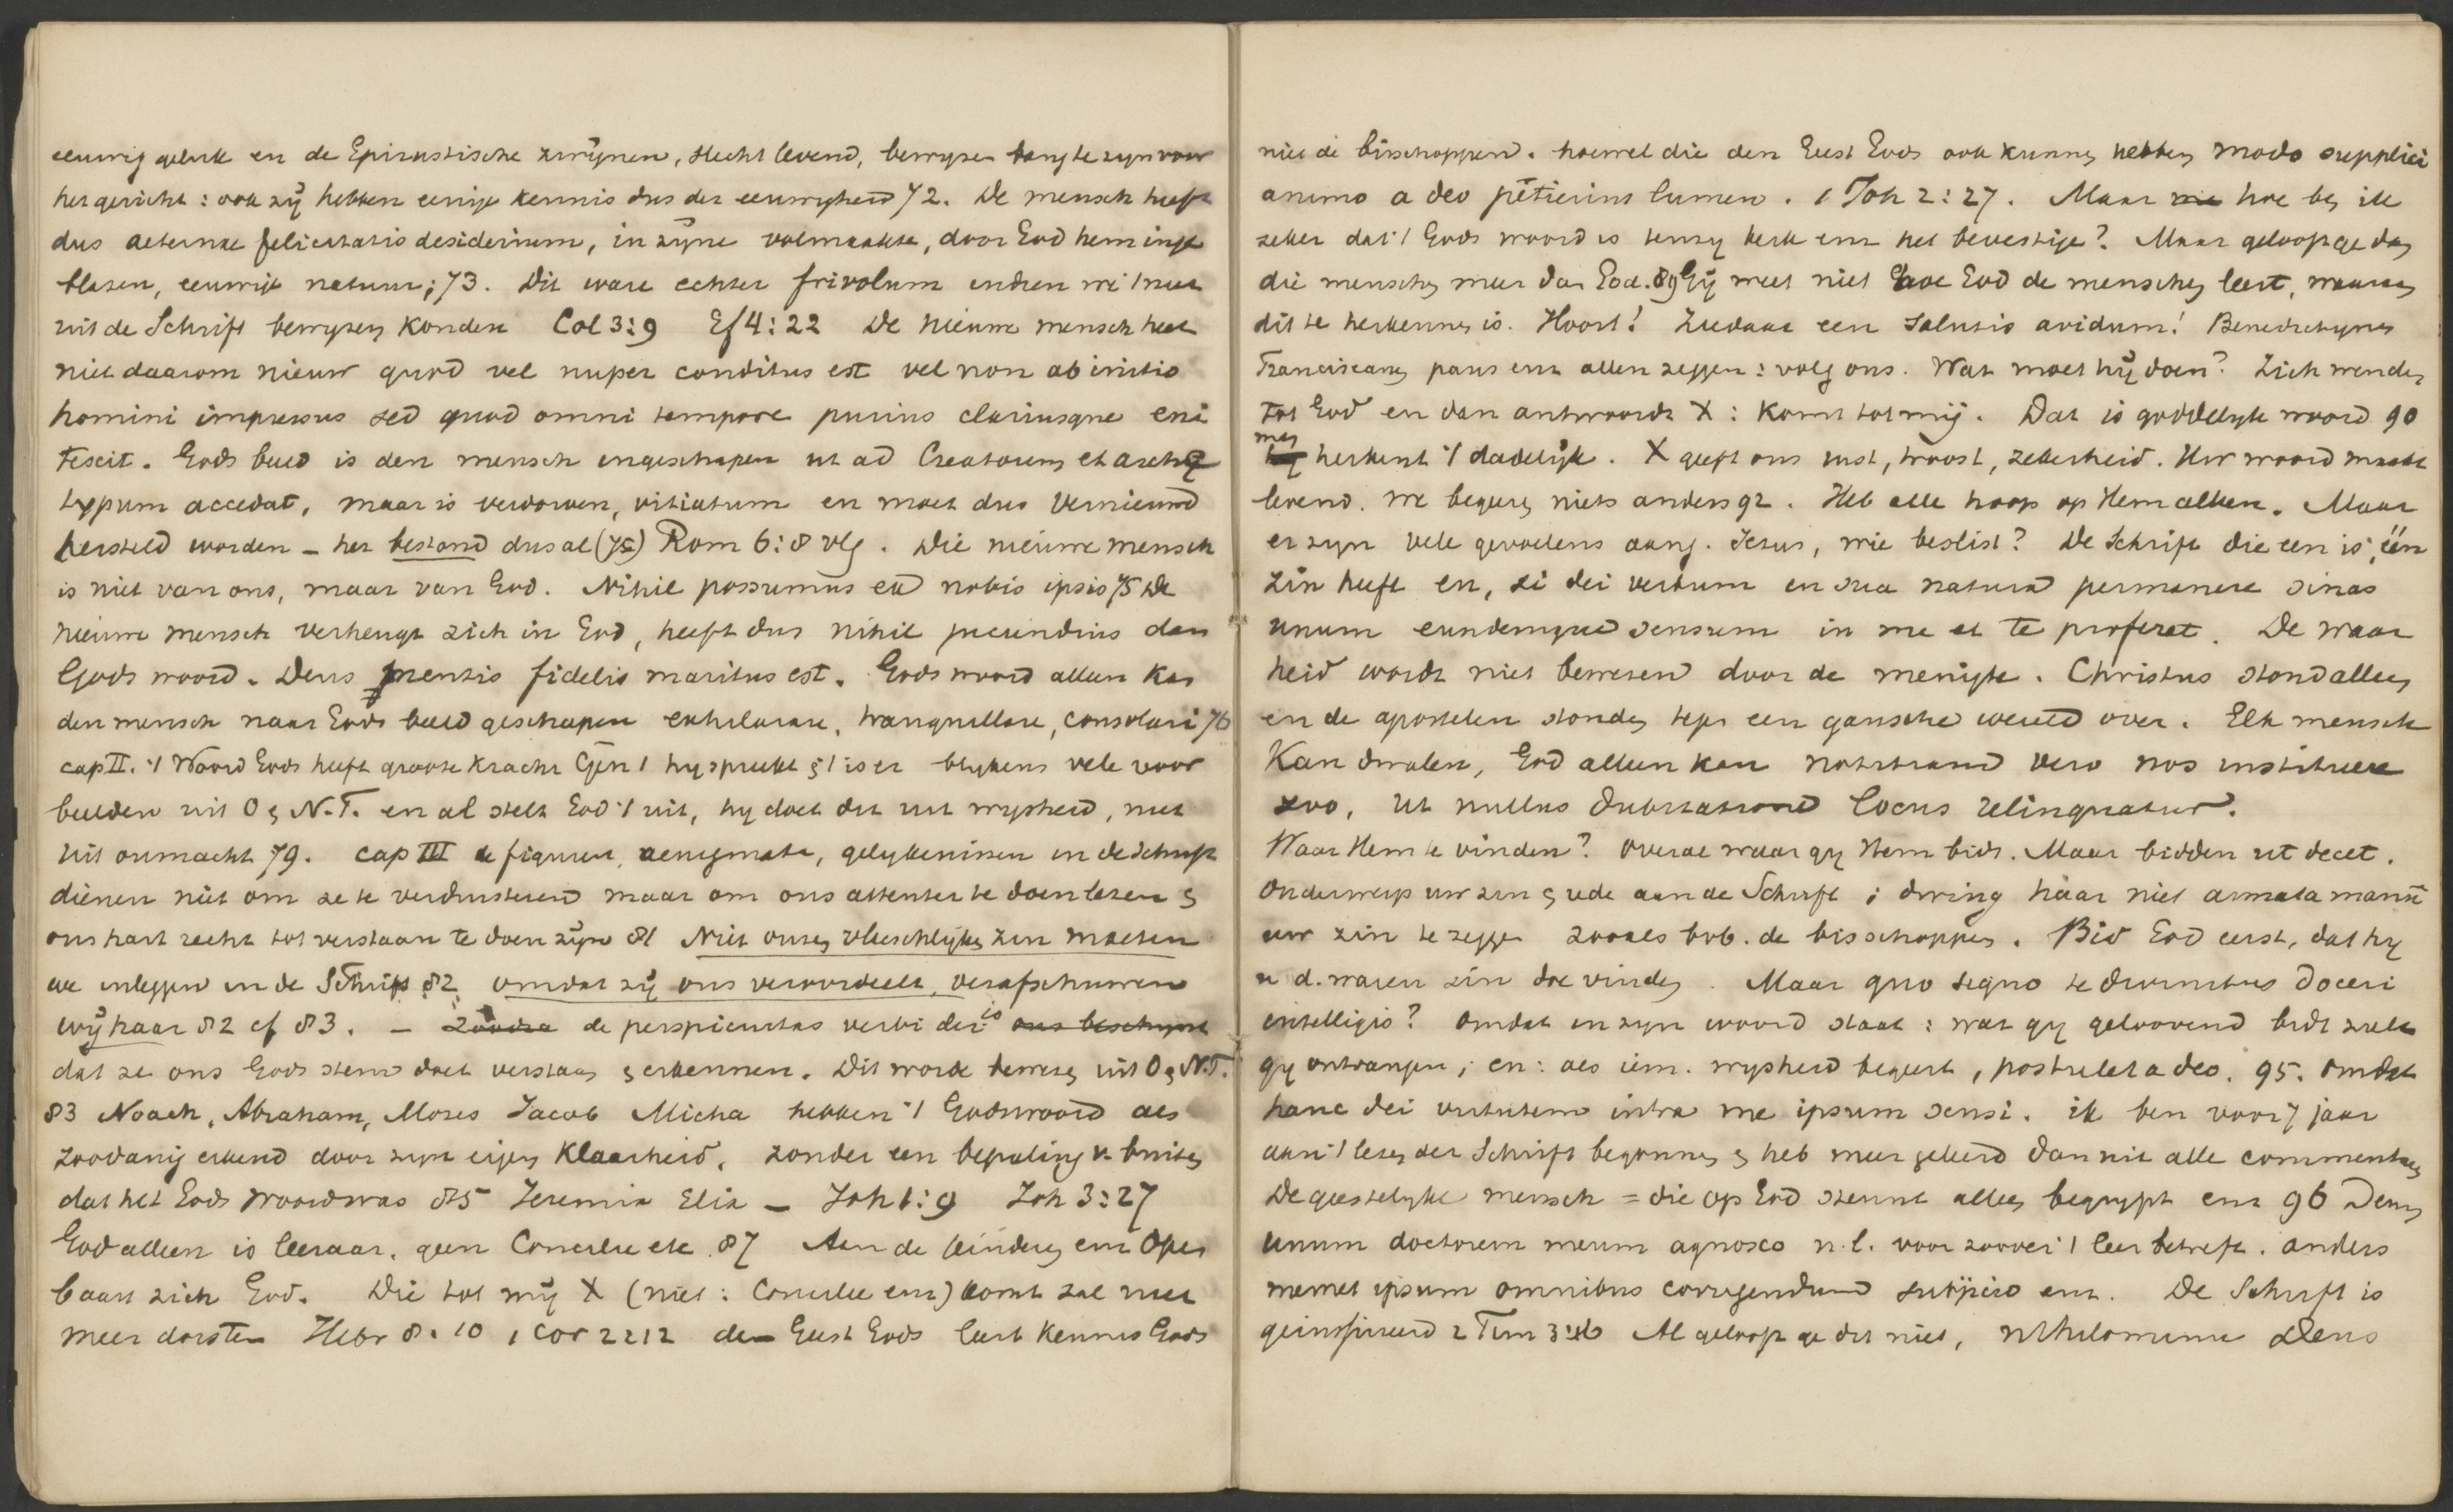 eeuwig geluk en de Epicuristische zwijnen, slecht levend, bewijzen bang te zijn voor
het gericht: ook zij hebben eenige kennis dus der eeuwigheid 72. De mensch heeft
dus aeternae felicitatis desiderium, in zijne volmaakte, door God hem inge
blazen, eeuwige natuur; 73. Dit ware echter frivolum indien we 't niet
uit de Schrift bewijzen konden Col 3:9 Ef 4:22 De nieuwe mensch heet
niet daarom nieuw quod vel nuper conditus est vel non ab initio
homini impressus sed quod omni tempore purius clariusque eni
tescit. Gods beeld is den mensch ingeschapen ut ad Creatorem et arche
typum accedat, maar is verdorven, vitiatum en moet dus vernieuwd
hersteld worden – het bestond dus al (75) Rom 6:8 vlg. Die nieuwe mensch
is niet van ons, maar van God. Nihil possumus ex nobis ipsis 75 De
nieuwe mensch verheugt zich in God, heeft dus nihil jucundius dan
Gods woord. Deus mentis fidelis maritus est. Gods woord alleen kan
den mensch naar Gods beeld geschapen exhilarare, tranquillare, consolari 76
cap II. 't Woord Gods heeft groote kracht Gen 1 hij spreekt & 't is er blijkens vele voor
beelden uit O & N.T. en al stelt God 't uit, hij doet dit uit wijsheid, niet
uit onmacht 79. cap III de figuren, aenigmata, gelijkenissen in de Schrift
dienen niet om ze te verduisteren maar om ons attenter te doen lezen &
ons hart recht tot verstaan te doen zijn 81 Niet onzen vleeschlijken zin moeten
we inleggen in de Schrift 82, omdat zij ons veroordeelt, verafschuwen
wij haar 82 cf 83. – Zoodra de perspicuitas verbi dei is ons beschijnt
dat ze ons Gods stem doet verstaan & erkennen. Dit wordt bewezen uit O & N.T.
83 Noach, Abraham, Mozes Jacob Micha hebben 't Godswoord als
zoodanig erkend door zijn eigen klaarheid, zonder een bepaling v. buiten
dat het Gods woord was 85 Jeremia Elia – Joh 1:9 Joh 3:27
God alleen is leeraar, geen Concilie etc. 87 Aan de kinderen enz Open
baart zich God. Die tot mij X (niet: Concilie enz) komt zal niet
meer dorsten Hebr 8.10 1 Cor 2 : 12 den Geest Gods leert kennis Gods
niet de bisschoppen. hoewel die den Geest Gods ook kunnen hebben modo supplici
animo a deo petierint lumen. 1 Joh 2:27. Maar wie hoe ben ik
zeker dat 't Gods woord is tenzij kerk enz het bevestige? Maar gelooft ge dan
die menschen meer dan God. 89 Gij weet niet hoe God de menschen leert, waaraan
dit te herkennen is. Hoort! Ziedaar een salutis avidum! Benedictijnen
Franciscanen paus enz allen zeggen: volg ons. Wat moet hij doen? Zich wenden
tot God en dan antwoordt X: komt tot mij. Dat is goddelijk woord 90
men
hij herkent 't dadelijk. X geeft ons rust, troost, zekerheid. Uw woord maakt
levend. we begeeren niets anders 92. Heb alle hoop op Hem alleen. Maar
er zijn vele gevoelens aang. Jezus, wie beslist? De Schrift die een is, één
zin heeft en, si dei verbum in sua natura permanere sinas
unum eundemque sensum in me et te proferet. De waar
heid wordt niet bewezen door de menigte. Christus stond alleen
en de apostelen stonden tegen een gansche wereld over. Elk mensch
kan dwalen, God alleen kan nostrum vero nos instituere
zoo, ut nullus dubitationi locus relinquatur.
Waar Hem te vinden? overal waar gij Hem bidt. Maar bidden ut decet.
Onderwerp uw zin & rede aan de Schrift; dwing haar niet armata manu
uw zin te zeggen zooals bvb. de bisschoppen. Bid God eerst, dat hij
u d. waren zin doe vinden. Maar quo signo te divinitus doceri
intelligis? Omdat in zijn woord staat: wat gij geloovend bidt zult
gij ontvangen; en: als iem. wijsheid begeert, postulet a deo. 95. Omdat
hanc dei virtutem intra me ipsum sensi. ik ben voor 7 jaar
aan 't lezen der Schrift begonnen & heb meer geleerd dan uit alle commentaren
De geestelijke mensch = die op God steunt alleen begrijpt enz 96 Deum
unum doctorem meum agnosco n.l. voor zoover 't leer betreft. anders
memet ipsum omnibus corrigendum subjicio enz. De Schrift is
geinspireerd 2 Tim 3:16 Al gelooft ge dit niet, nihilominus Deus